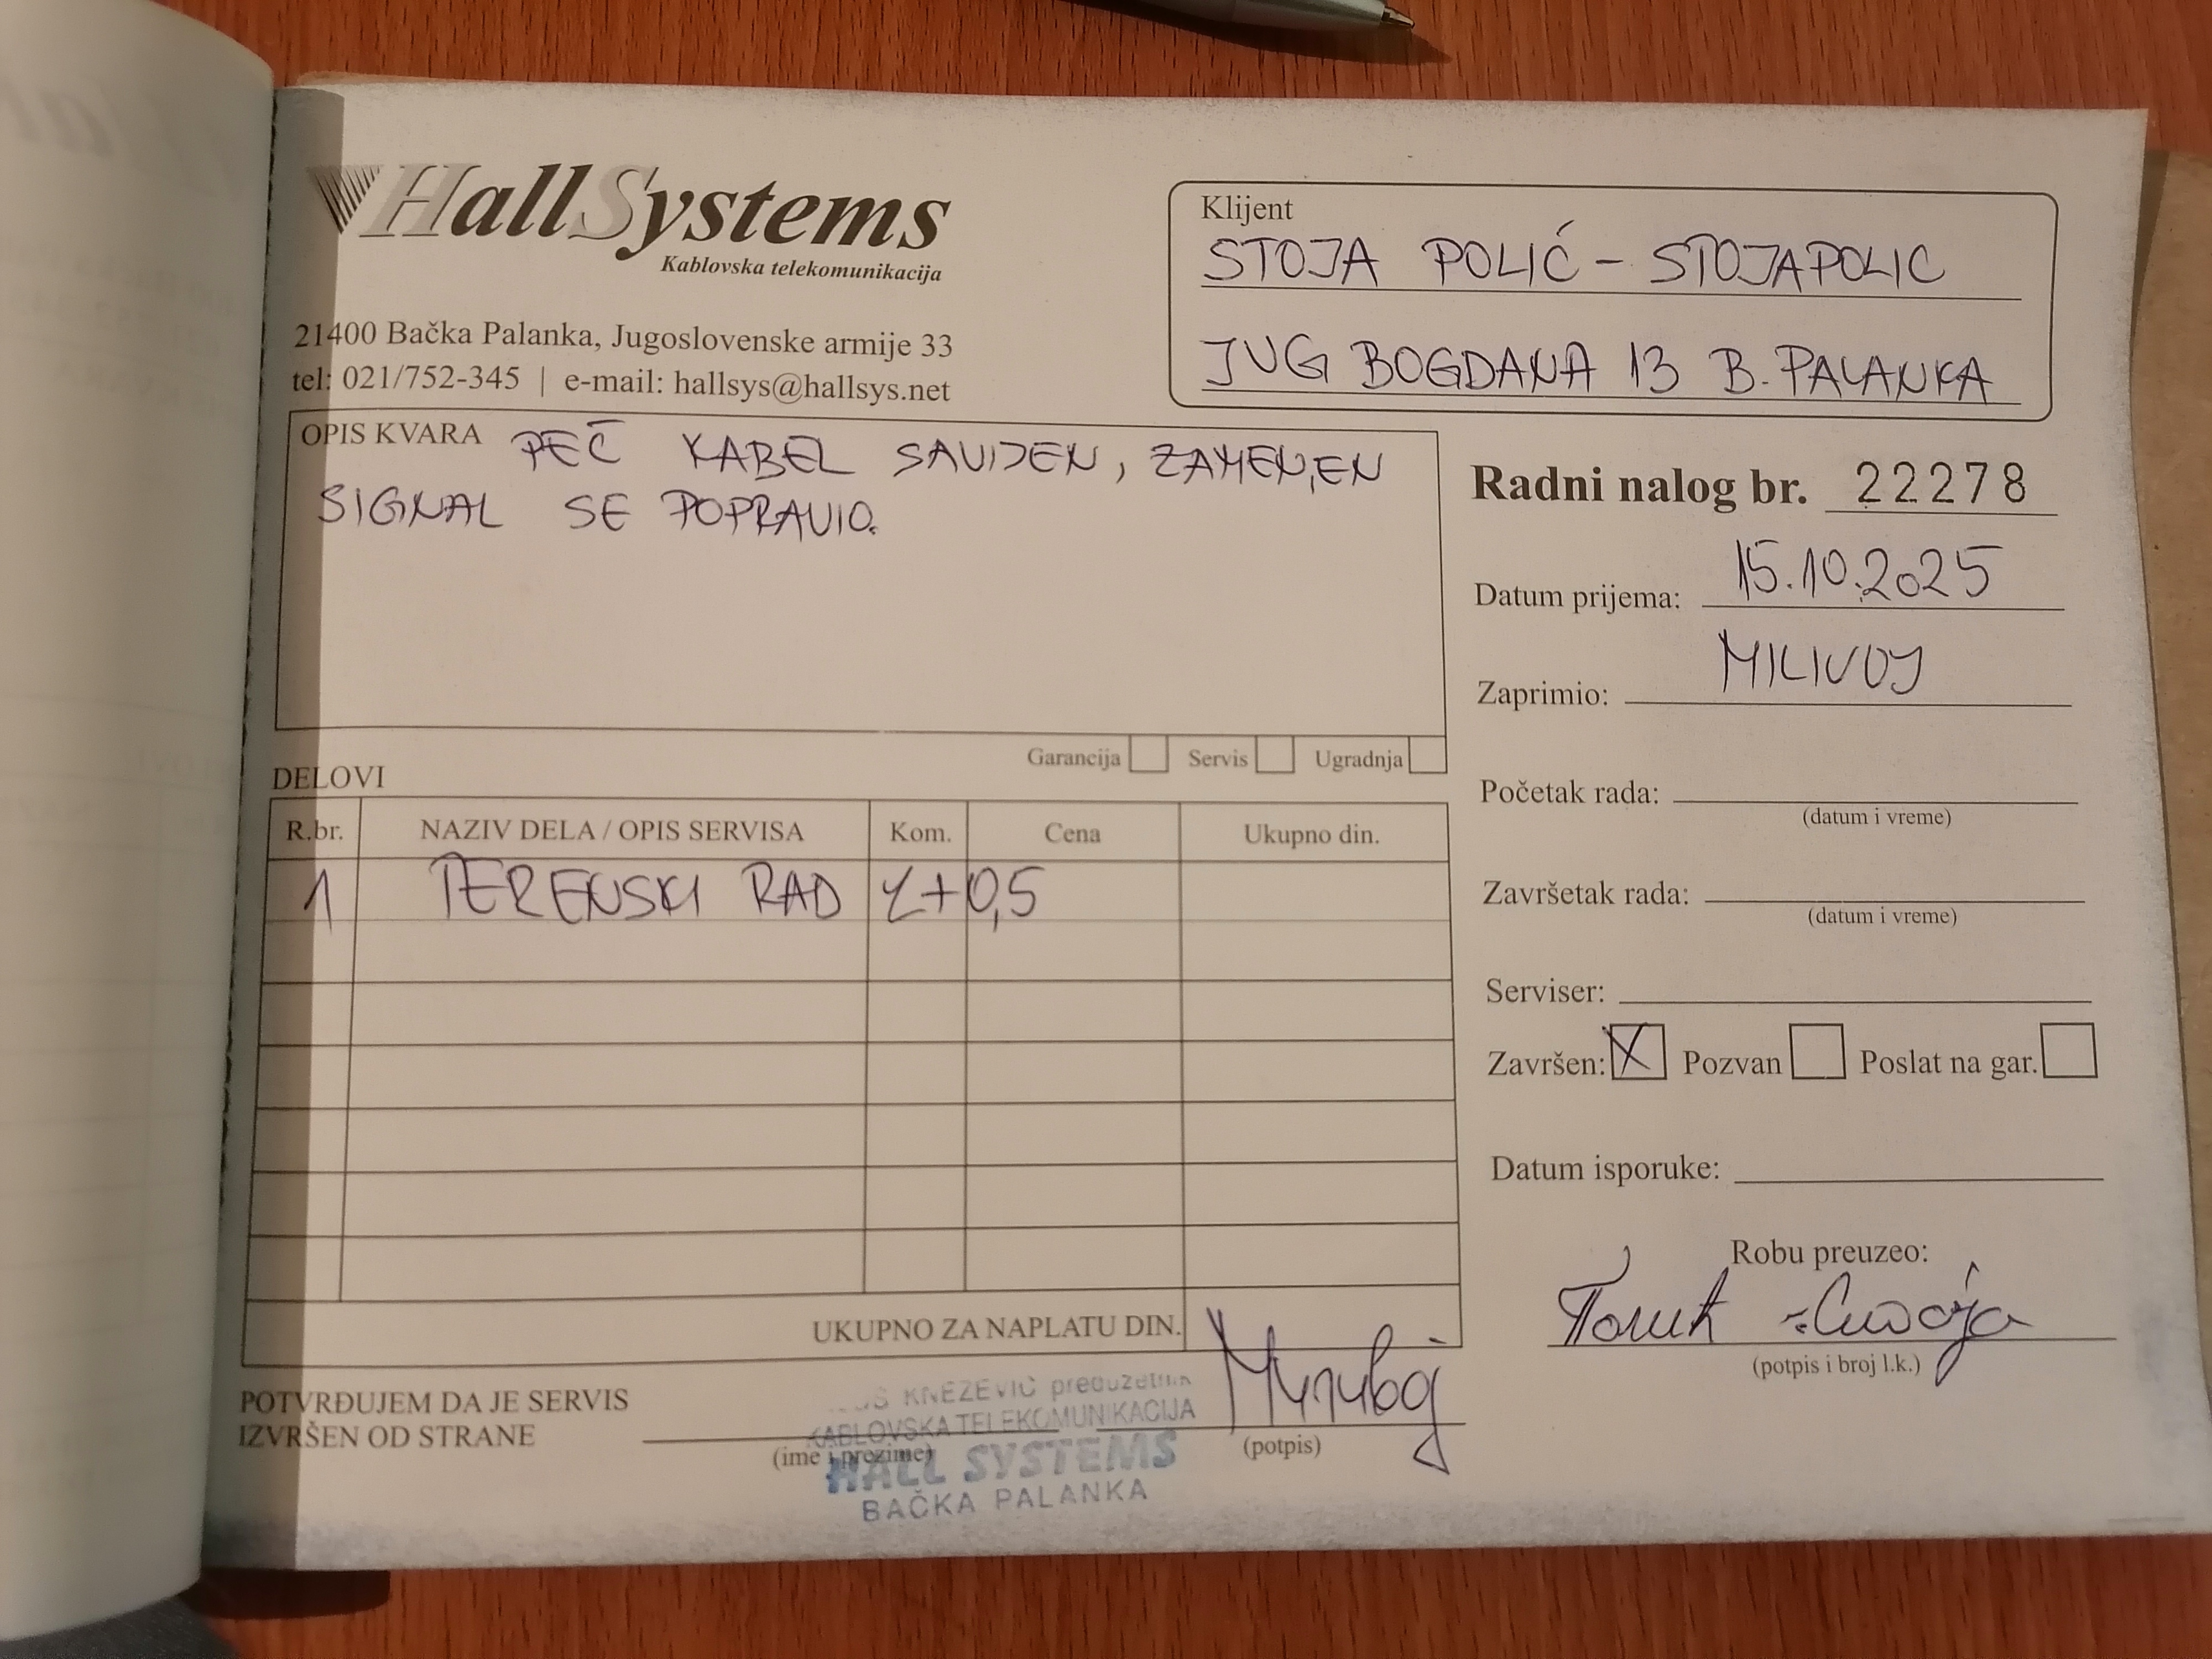 HallSystems
Kablovska telekomunikacija
21400 Bačka Palanka, Jugoslovenske armije 33
tel: 021/752-345 | e-mail: hallsys@hallsys.net
Klijent
STOJA POLIĆ - STOJAPOLIC
JUG BOGDANA 13 B. PALANKA
OPIS KVARA PEČ KABEL SAVIJEN, ZAMENJEN
SIGNAL SE POPRAVIO.
Garancija Servis Ugradnja
Radni nalog br. 22278
Datum prijema: 15.10.2025
Zaprimio: MILIVOJ
Početak rada:
(datum i vreme)
Završetak rada:
(datum i vreme)
Serviser:
Završen: X Pozvan Poslat na gar.
Datum isporuke:
Robu preuzeo:
(potpis i broj l.k.)
DELOVI
R.br. NAZIV DELA / OPIS SERVISA Kom. Cena Ukupno din.
1 TERENSKI RAD +0,5
UKUPNO ZA NAPLATU DIN.
POTVRĐUJEM DA JE SERVIS
IZVRŠEN OD STRANE
(ime i prezime) (potpis)
KNEŽEVIĆ preduzetnik
KABLOVSKA TELEKOMUNIKACIJA
HALL SYSTEMS
BAČKA PALANKA